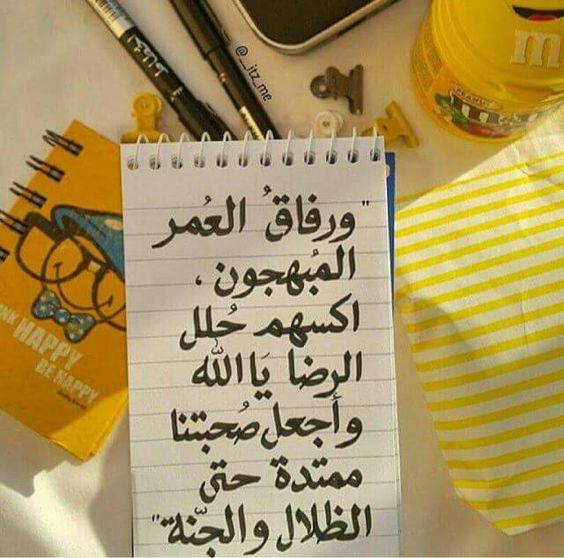 "ورفاقُ العُمر
المُبهجون،
اكسهم حُلل
الرضا يَا الله
وأجعل صُحبتنا
ممتدة حتى
الظلال والجنّة"
@__itz_me
m
PEANUT
HAPPY
BE HAPPY